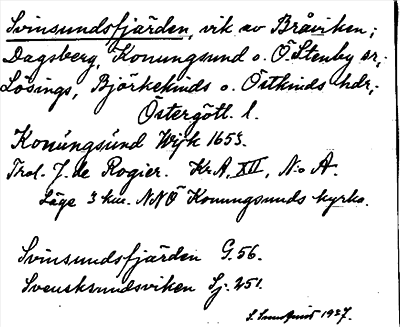 Svinsundsfjärden, vik av Bråviken;
Dagsberg, Konungsund o. Ö Stenby sr,;
Lösings, Björkekinds o. Östkinds hdr,;
Östergötl. l.
Konúngsúnd Wijk 1653.
Trol. J. de Rogier. Kr.A. XII, N:o A.
Läge 3 km. NNÖ Konungsunds kyrka.
Svinsundsfjärden G. 56.
Svensksundsviken Sj. 251.
1927.